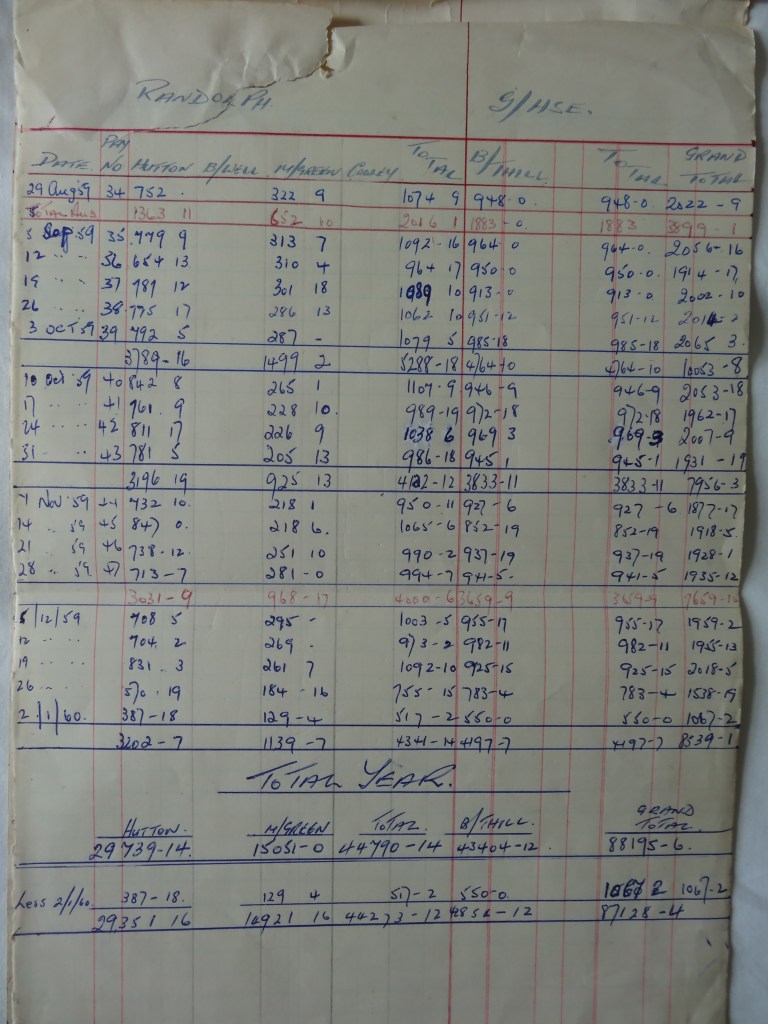 RANDOLPH G/HSE.
DATE. PAY NO HUTTON B/WELL M/GREEN TOTAL B/THILL TOTAL GRAND TOTAL
29 Aug 59 34 752 . 322 9 1074 9 948-0 948-0 2022-9
TOTAL AUG 1363 11 652 10 2016 1 1883-0 1883 3899-1
5 Sep 59 35 779 9 313 7 1092-16 964-0 964-0 2056-16
12 " " 36 654 13 310 4 964 17 950-0 950-0 1914-17
19 " " 37 787 12 301 18 1089 10 913-0 913-0 2002-10
26 " " 38 775 17 286 13 1062 10 951-12 951-12 2014-2
3 OCT 59 39 792 5 287 - 1079 5 985-18 985-18 2065 3
3789-16 1499 2 5288-18 4764-10 4764-10 10053-8
10 Oct 59 40 842 8 265 1 1107-9 946-9 946-9 2053-18
17 " " 41 761 9 228 10. 989-19 972-18 972-18 1962-17
24 " " 42 811 17 226 9 1038 6 969 3 969-3 2007-9
31 " " 43 781 5 205 13 986-18 945 1 945-1 1931-19
3196 19 925 13 4122-12 3833-11 3833-11 7956-3
7 Nov 59 44 732 10. 218 1 950-11 927-6 927-6 1877-17
14 " 59 45 847 0. 218 6. 1065-6 852-19 852-19 1918-5.
21 " 59 46 738-12. 251 10 990-2 937-19 937-19 1928-1
28 " 59 47 713-7 281-0 994-7 941-5- 941-5 1935-12
3031-9 968-17 4000-6 3659-9 3659-9 7659-15
5/12/59 708 5 295 - 1003-5 955-17 955-17 1959-2
12 " " 704. 2 269 . 973-2 982-11 982-11 1955-13
19 " " 831. 3 261 7 1092-10 925-15 925-15 2018-5
26 " " 570. 19 184-16 755-15 783-4 783-4 1538-19
2/1/60. 387-18 129-4 517-2 550-0 550-0 1067-2
3202-7 1139-7 4341-14 4197-7 4197-7 8539-1
TOTAL YEAR.
HUTTON. M/GREEN TOTAL. B/THILL. GRAND TOTAL.
29739-14. 15051-0 44790-14 43404-12. 88195-6.
Less 2/1/60. 387-18. 129 4 517-2 550-0. 1067 2 1067-2
29351 16 14921 16 44273-12 42854-12 87128-4